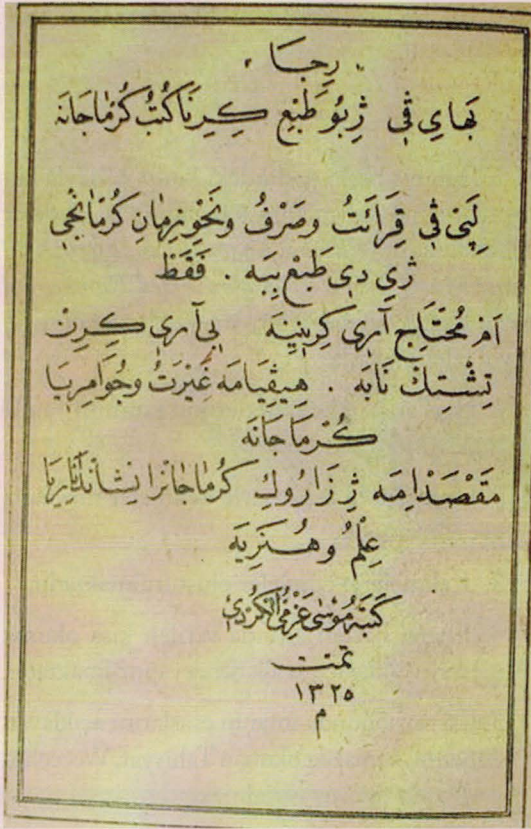 . رِجَا .
بَهايِ ڤٖى ژِبُو طَبْعِ كِرِنَا كُتُبُ كُرْمٰاجَانَه
لِپَىْ ڤٖى قِرَائَتُ وصَرْفُ ونَحْوِ زِمٰانِ كُرْمٰانْجٖى
ژِى دٖى طَبْعْ بِبَه . فَقَطْ
اَمْ مُحْتَاجِ آرٖى كِرِنٖينَه بٖى آرٖى كِرِنْ
تِشْتِكْ نَابَه . هِيڤِيَامَه غَيْرَتُ وجُوَامِرِيَا
كُرْمَاجَانَه
مَقْصَدَامَه ژِ زَارُوكِ كُرْمٰاجَانْرَا نِيشَانْدَانَارِيَا
عِلْمُ وهُنَرِيَه
كَتَبَهُ مُوسٰى عَزْمِى الْكُرْدِى
تمت
١٣٢٥
م